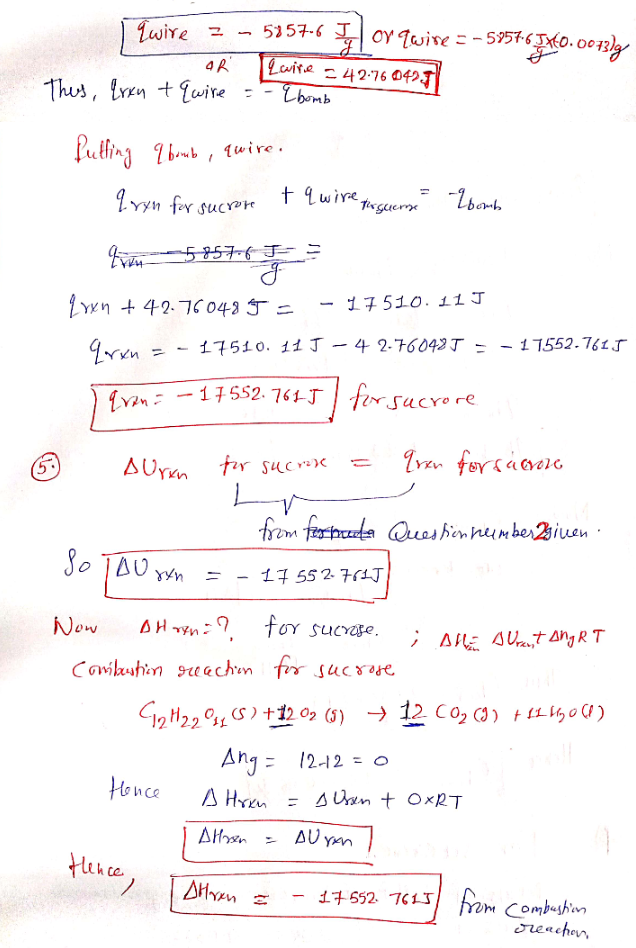 qwire = - 5857.6 J/g or qwire = - 5857.6 J/g x(0.0073)g
OR qwire = 42.76042J
Thus, qrxn + qwire = - qbomb
Putting qbomb, qwire.
qrxn for sucrose + qwire for sucrose = -qbomb
qrxn - 5857.6 J/g =
qrxn + 42.76048 J = - 17510.11 J
qrxn = - 17510.11 J - 42.76048J = - 17552.761J
qrxn = - 17552.761J for sucrose
5. ΔUrxn for sucrose = qrxn for sucrose
from formula Question number 2 given.
So ΔUrxn = - 17552.761J
Now ΔHrxn = ? for sucrose. ; ΔHrxn = ΔUrxn + ΔngRT
Combustion reaction for sucrose
C12H22O11 (s) + 12O2 (g) → 12 CO2 (g) + 11 H2O (l)
Δng = 12-12 = 0
Hence ΔHrxn = ΔUrxn + 0xRT
ΔHrxn = ΔUrxn
Hence, ΔHrxn = - 17552.761J from combustion
reaction.